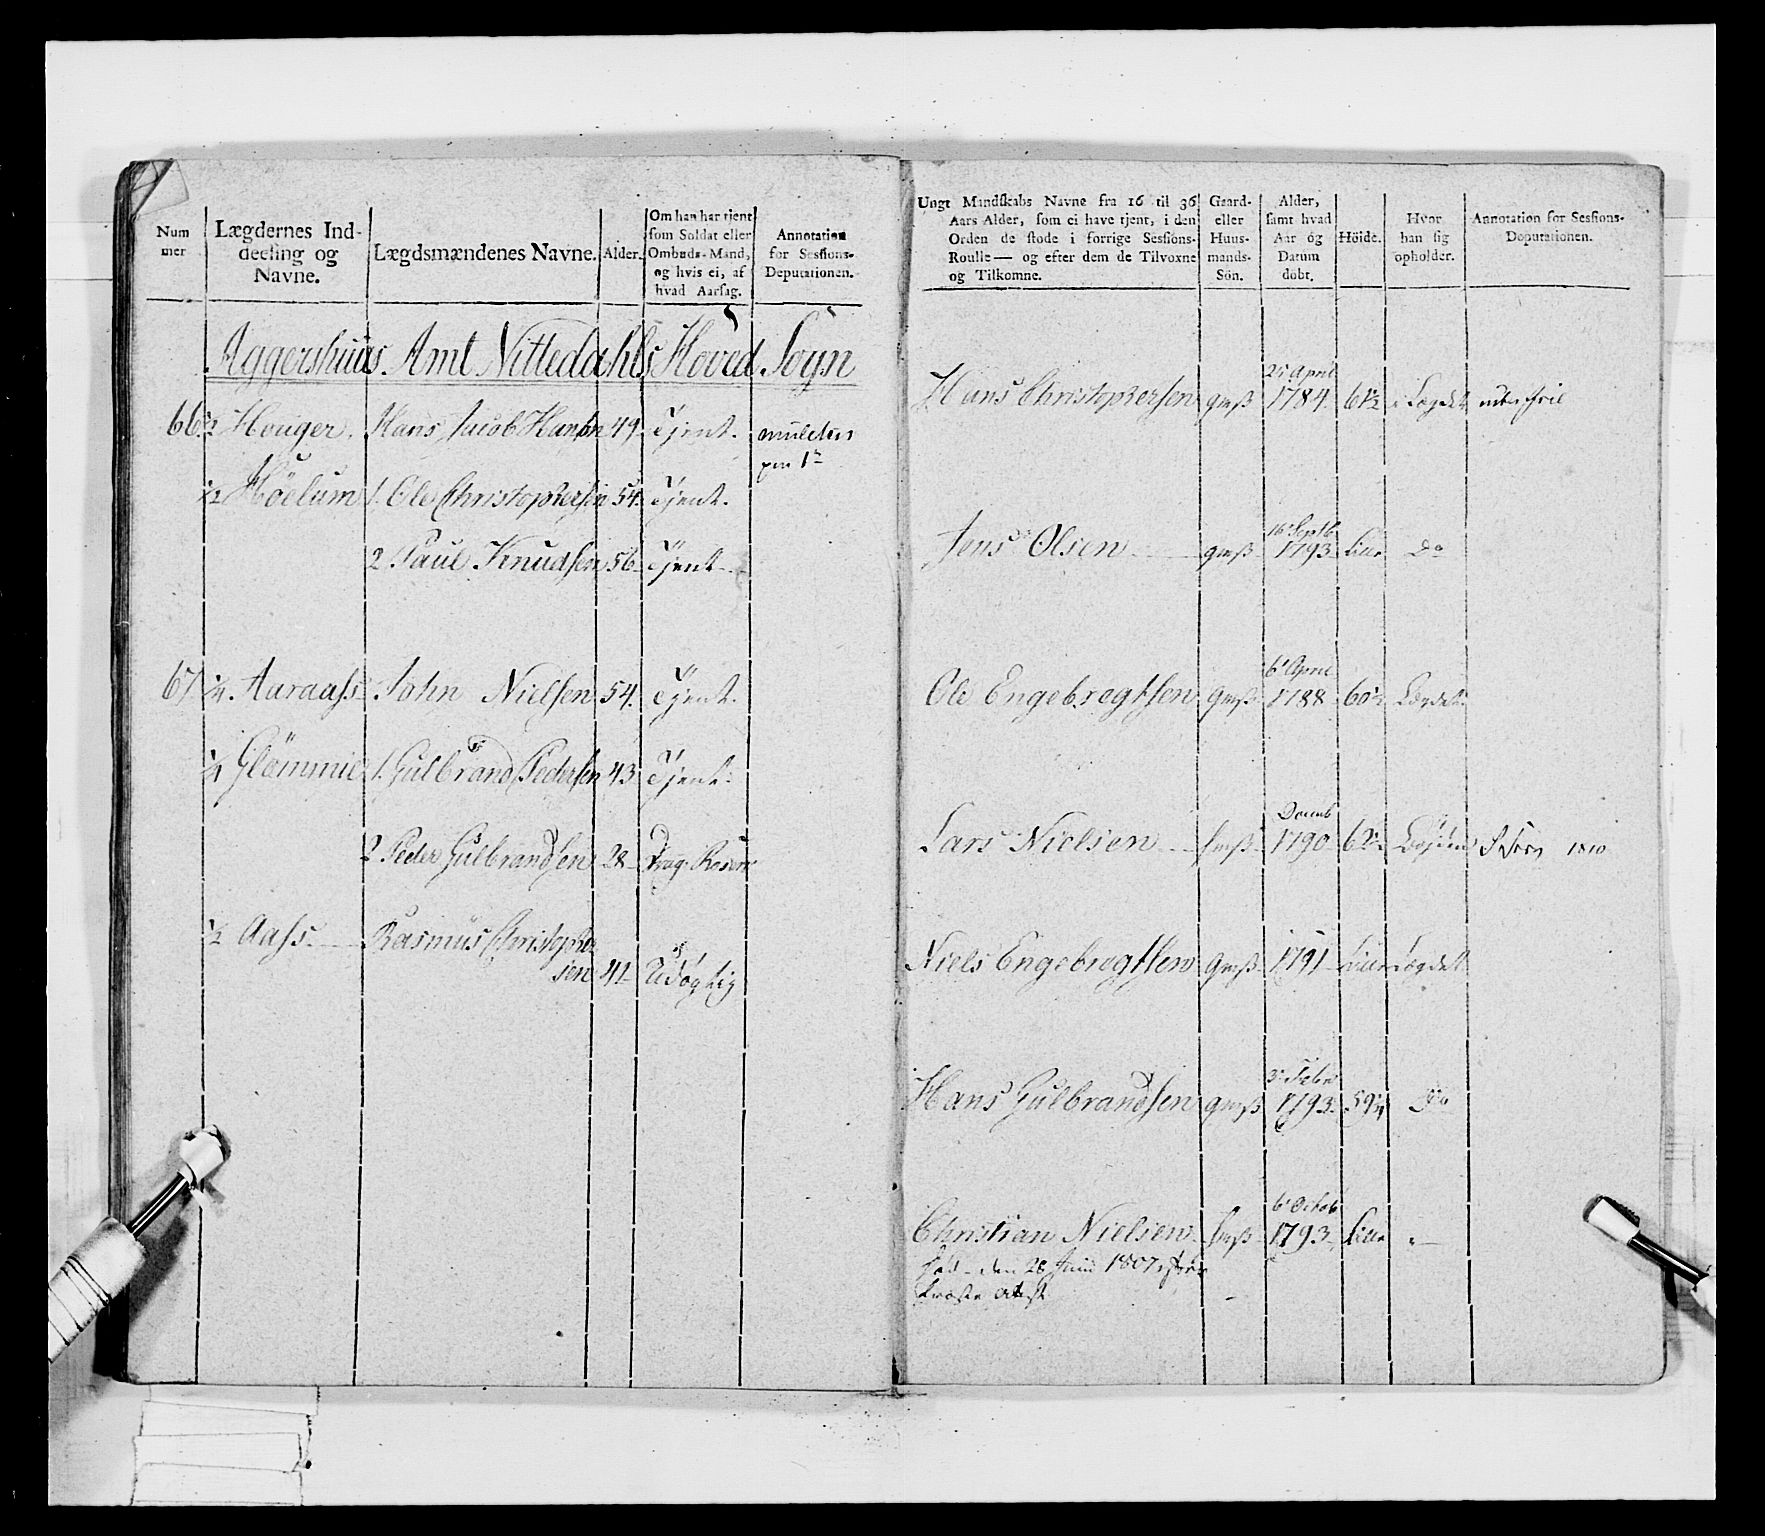 Num
mer
Lægdernes Ind-
deeling og
Navne.
Lægdsmændenes Navne.
Alder.
Om han har tjent
som Soldat eller
Ombuds-Mand,
og hvis ei, af
hvad Aarsag.
Annotation
for Sessions-
Deputationen.
Aggershuus Amt Nittedahls Hoved Sogn
66. ½ Houger. Hans Jacob Hansen 49. Tjent.
½ Höelum 1. Ole Christophersen 54. Tjent.
2 Paul Knudsen 56 Tjent
67 ¼. Aaraass John Nielsen 54. Tjent.
¼ Glömmie 1. Gulbrand Pedersen 43 Tjent.
2 Peder Gulbrandsen 28 Drag. Reserv
½ Aass Rasmus Christopher
sen 41 Udögtig
Ungt Mandskabs Navne fra 16 til 36
Aars Alder, som ei have tjent, i den
Orden de stode i forrige Sessions-
Roulle — og efter dem de Tilvoxne
og Tilkomne.
Gaard-
eller
Huus-
mands-
Sön.
Alder,
samt hvad
Aar og
Datum
döbt.
Höide.
Hvor
han sig
opholder.
Annotation for Sessions-
Deputationen.
April
Hans Christophersen gmß 1784. 61½ Lægdet
16 Septb
Jens Olsen gmß 1793 Lille Do
6 April
Ole Engebregtsen gmß 1788 60½ Lægdet
Decemb
Lars Nielsen hmß 1790 1810
Niels Engebregtsen gmß 1791 Lille Lægdet
3 Febr
Hans Gulbrandsen gmß 1793. 59¼ Do
6 Octob
Christian Nielsen hmß 1793 Lille
den 28 Junii 1807